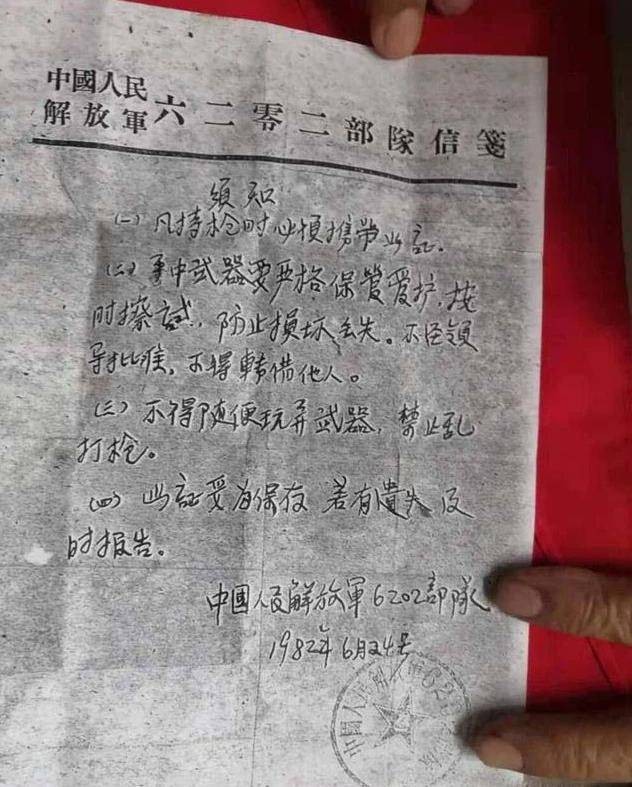 中國人民
解放軍六二零二部隊信箋
須知
(一) 凡持枪时必須携带此証.
(二) 手中武器要严格保管爱护,按
时擦試,防止損坏丢失。不经領
导批准,不得轉借他人。
(三) 不得随便玩弄武器,禁止乱
打枪。
(四) 此証要自保存 若有遺失及
时报告。
中国人民解放軍6202部隊
1982年6月24号
中國人民解